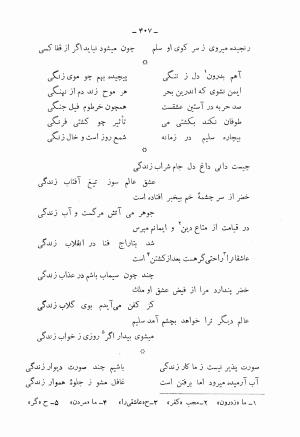 -۴۰۷-
رنجیده میروی ز سر کوی او سلیم چون میشود نیاید اگر از قفا کسی
آهم بدرون۱ دل ز تنگی پیچیده بهم چو موی زنگی
ایمن نشوی که اندرین بحر هر موج زند دم از نهنگی
صد حربه در آستین عشقست همچون خرطوم فیل جنگی
طوفان نکند بکشتی می تأثیر چو کشتی فرنگی
بیچاره سلیم در زمانه شمع روز است و خال زنگی
چیست دانی داغ دل جام شراب زندگی
عشق عالم سوز تیغ آفتاب زندگی
خضر از سر چشمهٔ خم بیخبر افتاده است
جوهر می آتش مرگست و آب زندگی
در قیامت از متاع دین۲ و ایمانم مپرس
شد بتاراج فنا در انقلاب زندگی
عاشقا نرا۳ راحتی گر هست بعد از کشتن۴ است
چند چون سیماب باشم در عذاب زندگی
خضر پندارد مرا از فیض عشق او ملک
کز کفن می‌آیدم بوی گلاب زندگی
عالم دیگر ترا خواهد بچشم آمد سلیم
میشوی بیدار اگر۵ روزی ز خواب زندگی
صورت پذیر نیست ز ما کار زندگی باشیم چند صورت دیوار زندگی
آب آرمیده میرود اما برفتن است غافل مشو ز جلوهٔ هموار زندگی
۱ـ ما «زدرون» ۲ـ مجب «کفر» ۳ـ ح«عاشقی‌را» ۴ـ ما «مردن» ۵ـ ح «گر»